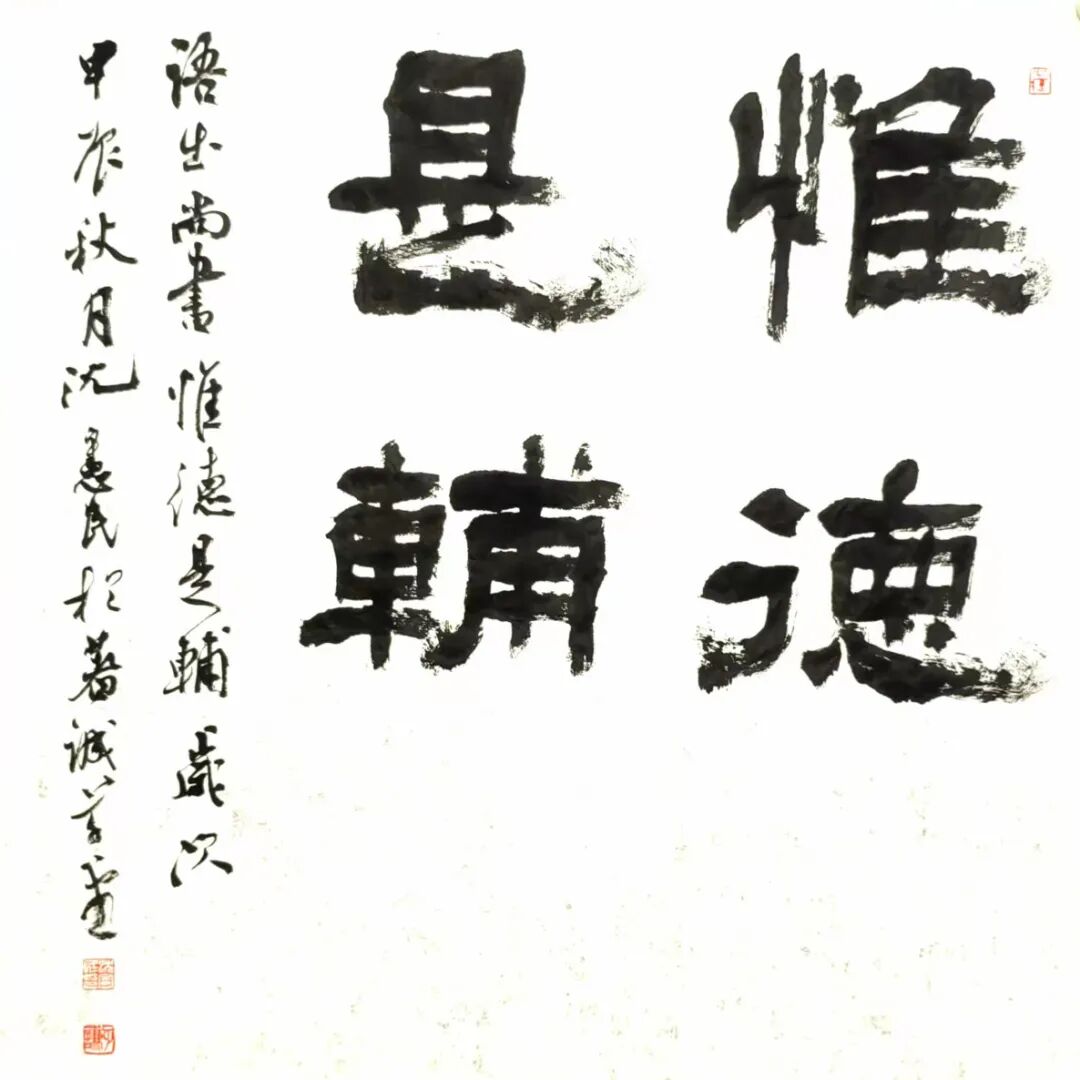 惟德
是輔
語出尚書惟德是輔歲次
甲辰秋月沈惠民於蓍誠草堂